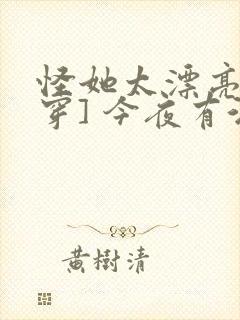 怪她太漂亮
穿] 今夜有
黃樹清